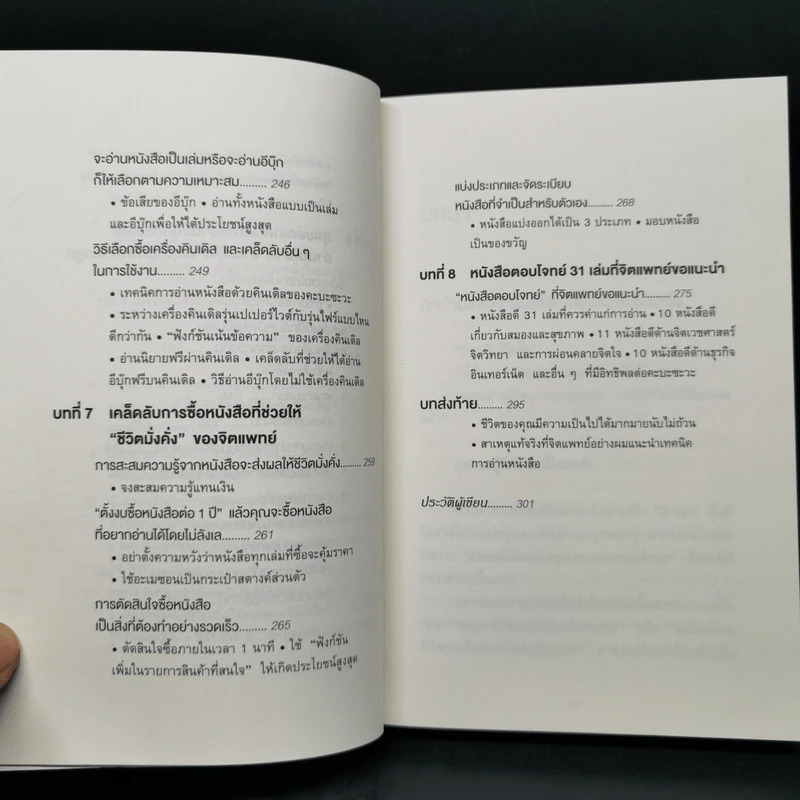 จะอ่านหนังสือเป็นเล่มหรือจะอ่านอีบุ๊ก
ก็ให้เลือกตามความเหมาะสม......... 246
• ข้อเสียของอีบุ๊ก • อ่านทั้งหนังสือแบบเป็นเล่ม
และอีบุ๊กเพื่อให้ได้ประโยชน์สูงสุด
วิธีเลือกซื้อเครื่องคินเดิล และเคล็ดลับอื่น ๆ
ในการใช้งาน......... 249
• เทคนิคการอ่านหนังสือด้วยคินเดิลของคะบะซะวะ
• ระหว่างเครื่องคินเดิลรุ่นเปเปอร์ไวต์กับรุ่นไฟร์แบบไหน
ดีกว่ากัน • "ฟังก์ชันเน้นข้อความ" ของเครื่องคินเดิล
• อ่านนิยายฟรีผ่านคินเดิล • เคล็ดลับที่ช่วยให้ได้อ่าน
อีบุ๊กฟรีบนคินเดิล • วิธีอ่านอีบุ๊กโดยไม่ใช้เครื่องคินเดิล
บทที่ 7 เคล็ดลับการซื้อหนังสือที่ช่วยให้
"ชีวิตมั่งคั่ง" ของจิตแพทย์
การสะสมความรู้จากหนังสือจะส่งผลให้ชีวิตมั่งคั่ง......... 259
• จงสะสมความรู้แทนเงิน
"ตั้งงบซื้อหนังสือต่อ 1 ปี" แล้วคุณจะซื้อหนังสือ
ที่อยากอ่านได้โดยไม่ลังเล......... 261
• อย่าตั้งความหวังว่าหนังสือทุกเล่มที่ซื้อจะคุ้มราคา
• ใช้อะเมซอนเป็นกระเป๋าสตางค์ส่วนตัว
การตัดสินใจซื้อหนังสือ
เป็นสิ่งที่ต้องทำอย่างรวดเร็ว......... 265
• ตัดสินใจซื้อภายในเวลา 1 นาที • ใช้ "ฟังก์ชัน
เพิ่มในรายการสินค้าที่สนใจ" ให้เกิดประโยชน์สูงสุด
แบ่งประเภทและจัดระเบียบ
หนังสือที่จำเป็นสำหรับตัวเอง......... 268
• หนังสือแบ่งออกได้เป็น 3 ประเภท • มอบหนังสือ
เป็นของขวัญ
บทที่ 8 หนังสือตอบโจทย์ 31 เล่มที่จิตแพทย์ขอแนะนำ
"หนังสือตอบโจทย์" ที่จิตแพทย์ขอแนะนำ......... 275
• หนังสือดี 31 เล่มที่ควรค่าแก่การอ่าน • 10 หนังสือดี
เกี่ยวกับสมองและสุขภาพ • 11 หนังสือดีด้านจิตเวชศาสตร์
จิตวิทยา และการผ่อนคลายจิตใจ • 10 หนังสือดีด้านธุรกิจ
อินเทอร์เน็ต และอื่น ๆ ที่มีอิทธิพลต่อคะบะซะวะ
บทส่งท้าย......... 295
• ชีวิตของคุณมีความเป็นไปได้มากมายนับไม่ถ้วน
• สาเหตุแท้จริงที่จิตแพทย์อย่างผมแนะนำเทคนิค
การอ่านหนังสือ
ประวัติผู้เขียน......... 301